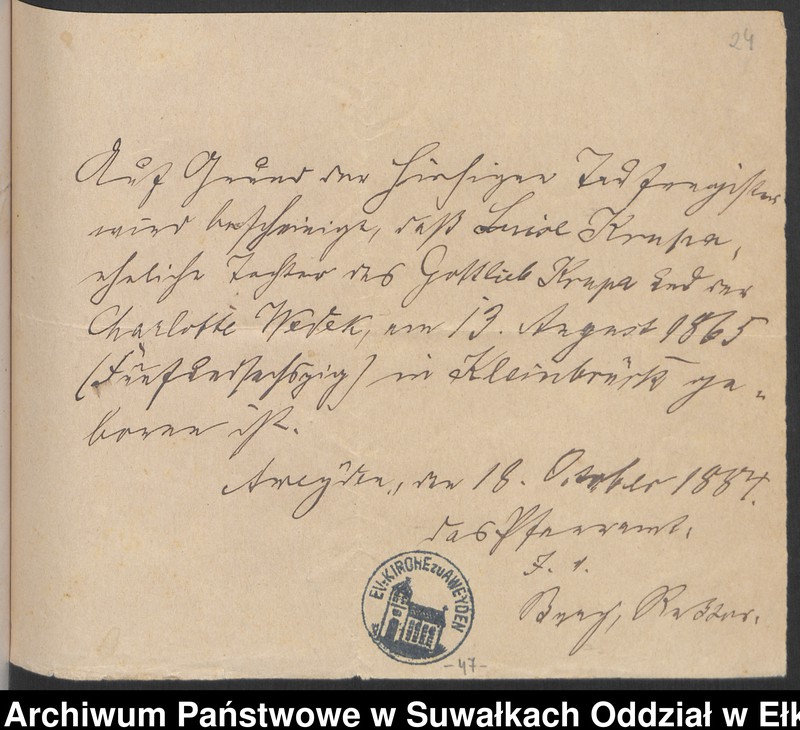 24
Auf Grund der hiesigen Taufregister
wird bescheinigt, daß Luise Krupa,
eheliche Tochter des Gottlieb Krupa und der
Charlotte Wedek, am 13. August 1865
(Fünfundsechszig) in Kleinbrück ge-
boren ist.
Aweyden, den 18. October 1887.
das Pfarramt.
EV. KIRCHE ZU AWEYDEN
Rektor.
-47-
Archiwum Państwowe w Suwałkach Oddział w Ełk